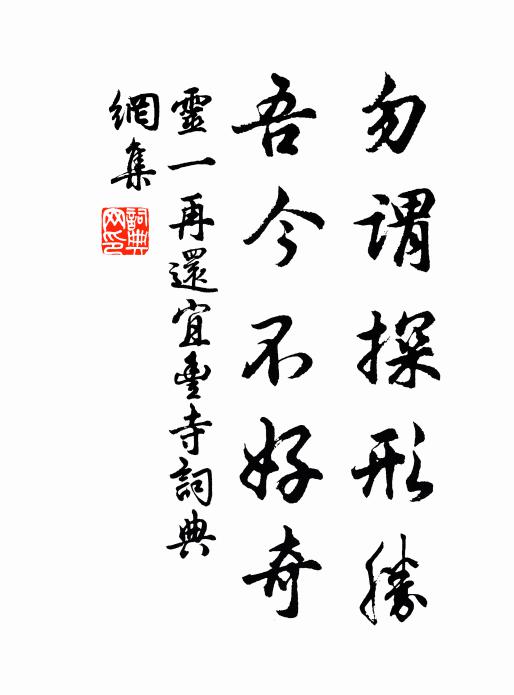 勿謂探形勝
吾今不好奇
靈一再還宜豐寺詞典
網集
詞典網印